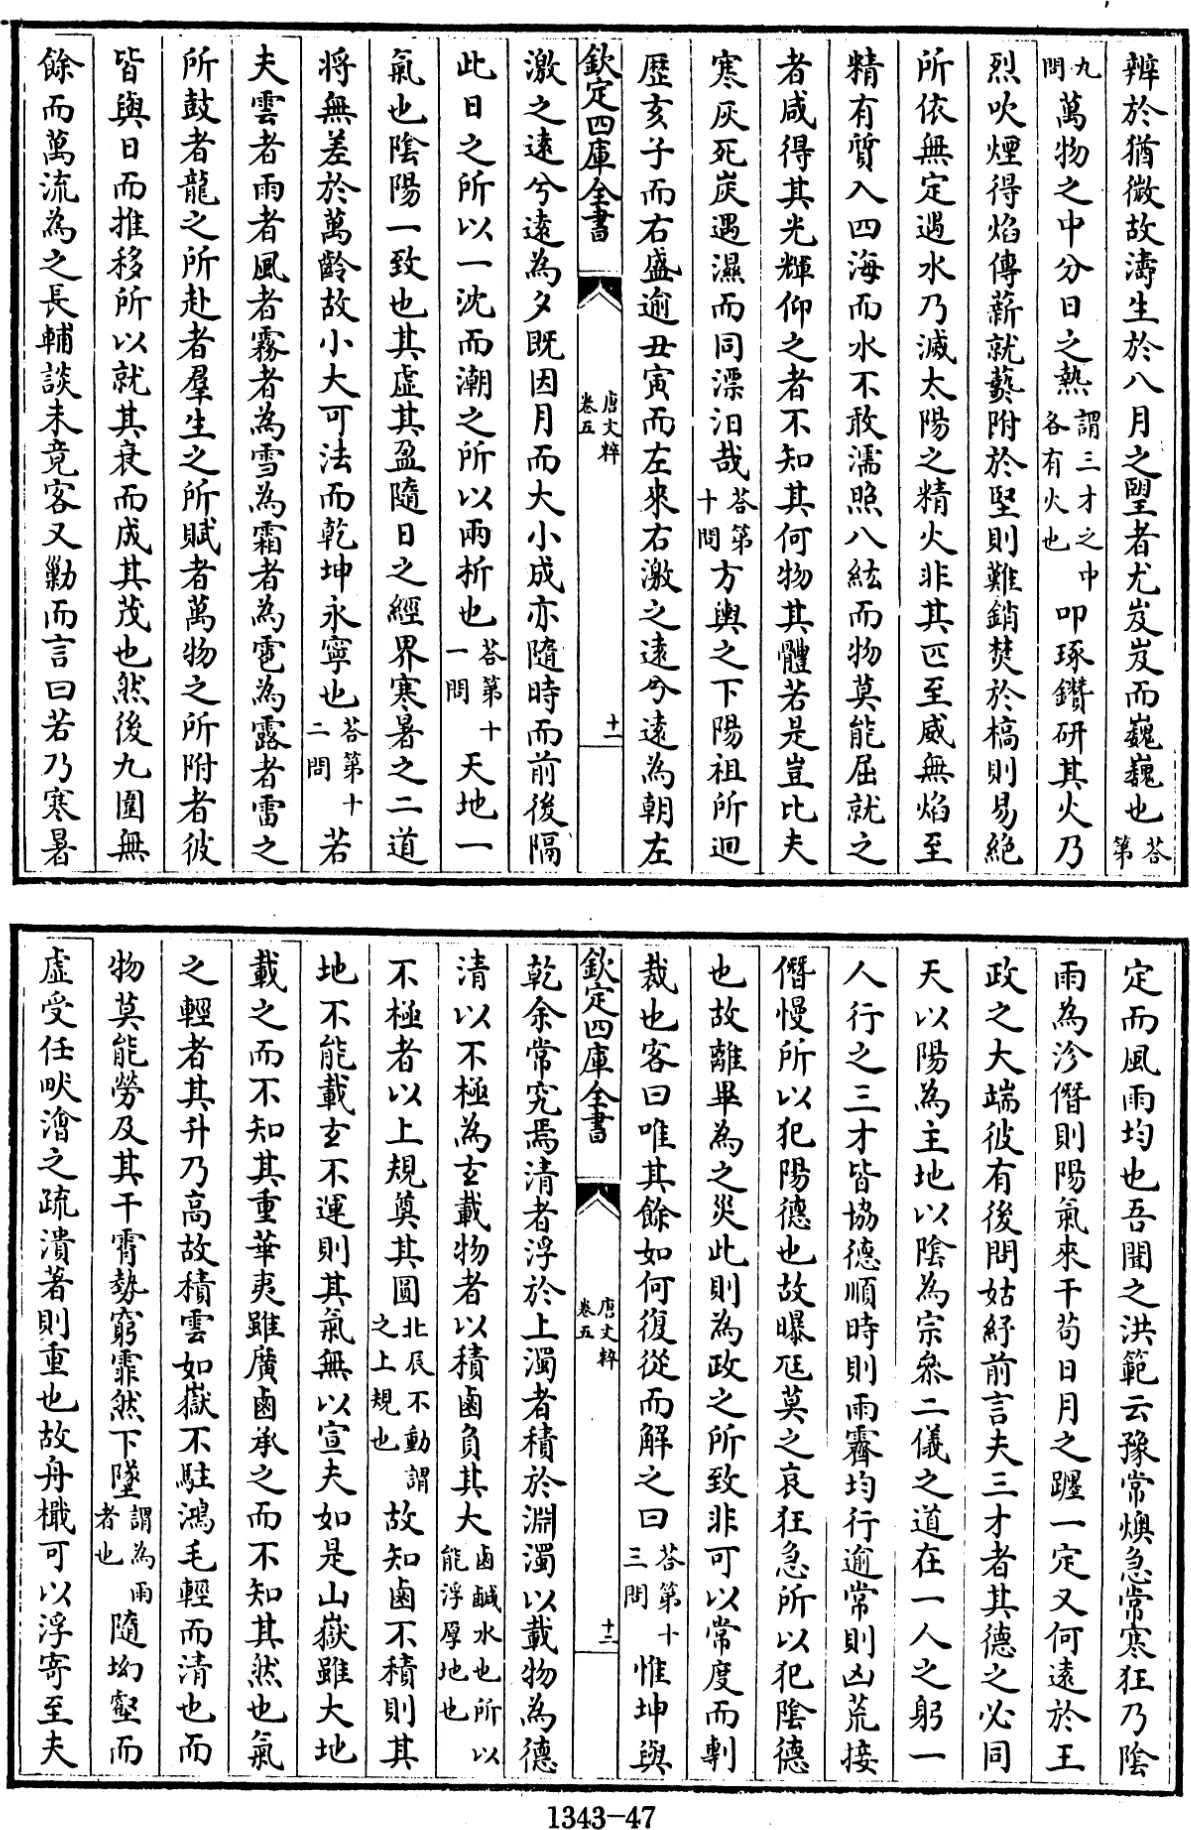 辨於猶微故濤生於八月之望者尤岌岌而巍巍也答第
九問萬物之中分日之熱謂三才之中各有火也叩琢鑽研其火乃
烈吹煙得焰傳薪就爇附於堅則難銷焚於槁則易絕
所依無定遇水乃滅太陽之精火非其匹至威無焰至
精有質入四海而水不敢濡照八紘而物莫能屈就之
者咸得其光輝仰之者不知其何物其體若是豈比夫
寒灰死炭遇濕而同漂汨哉答第十問方輿之下陽祖所迴
歷亥子而右盛逾丑寅而左來右激之遠兮遠為朝左
欽定四庫全書
唐文粹
卷五
十一
激之遠兮遠為夕既因月而大小成亦隨時而前後隔
此日之所以一沈而潮之所以兩析也答第十一問天地一
氣也陰陽一致也其虛其盈隨日之經界寒暑之二道
將無差於萬齡故小大可法而乾坤永寧也答第十二問若
夫雲者雨者風者霧者為雪為霜者為雹為露者雷之
所鼓者龍之所赴者羣生之所賦者萬物之所附者彼
皆與日而推移所以就其衰而成其茂也然後九圍無
餘而萬流為之長輔談未竟客又勦而言曰若乃寒暑
定而風雨均也吾聞之洪範云豫常燠急常寒狂乃陰
雨為沴僭則陽氣來干苟日月之躔一定又何遠於王
政之大端彼有後問姑紓前言夫三才者其德之必同
天以陽為主地以陰為宗參二儀之道在一人之躬一
人行之三才皆協德順時則雨霽均行逾常則凶荒接
僭慢所以犯陽德也故曝尫莫之哀狂急所以犯陰德
也故離畢為之災此則為政之所致非可以常度而剸
裁也客曰唯其餘如何復從而解之曰答第十三問惟坤與
欽定四庫全書
唐文粹
卷五
十二
乾余常究焉清者浮於上濁者積於淵濁以載物為德
清以不極為玄載物者以積鹵負其大鹵鹹水也所以能浮厚地也
不極者以上規奠其圓北辰不動謂之上規也故知鹵不積則其
地不能載玄不運則其氣無以宣夫如是山嶽雖大地
載之而不知其重華夷雖廣鹵承之而不知其然也氣
之輕者其升乃高故積雲如嶽不駐鴻毛輕而清也而
物莫能勞及其干霄勢窮霏然下墜謂為雨者也隨坳壑而
虛受任畎澮之疏潰著則重也故舟檝可以浮寄至夫
1343-47